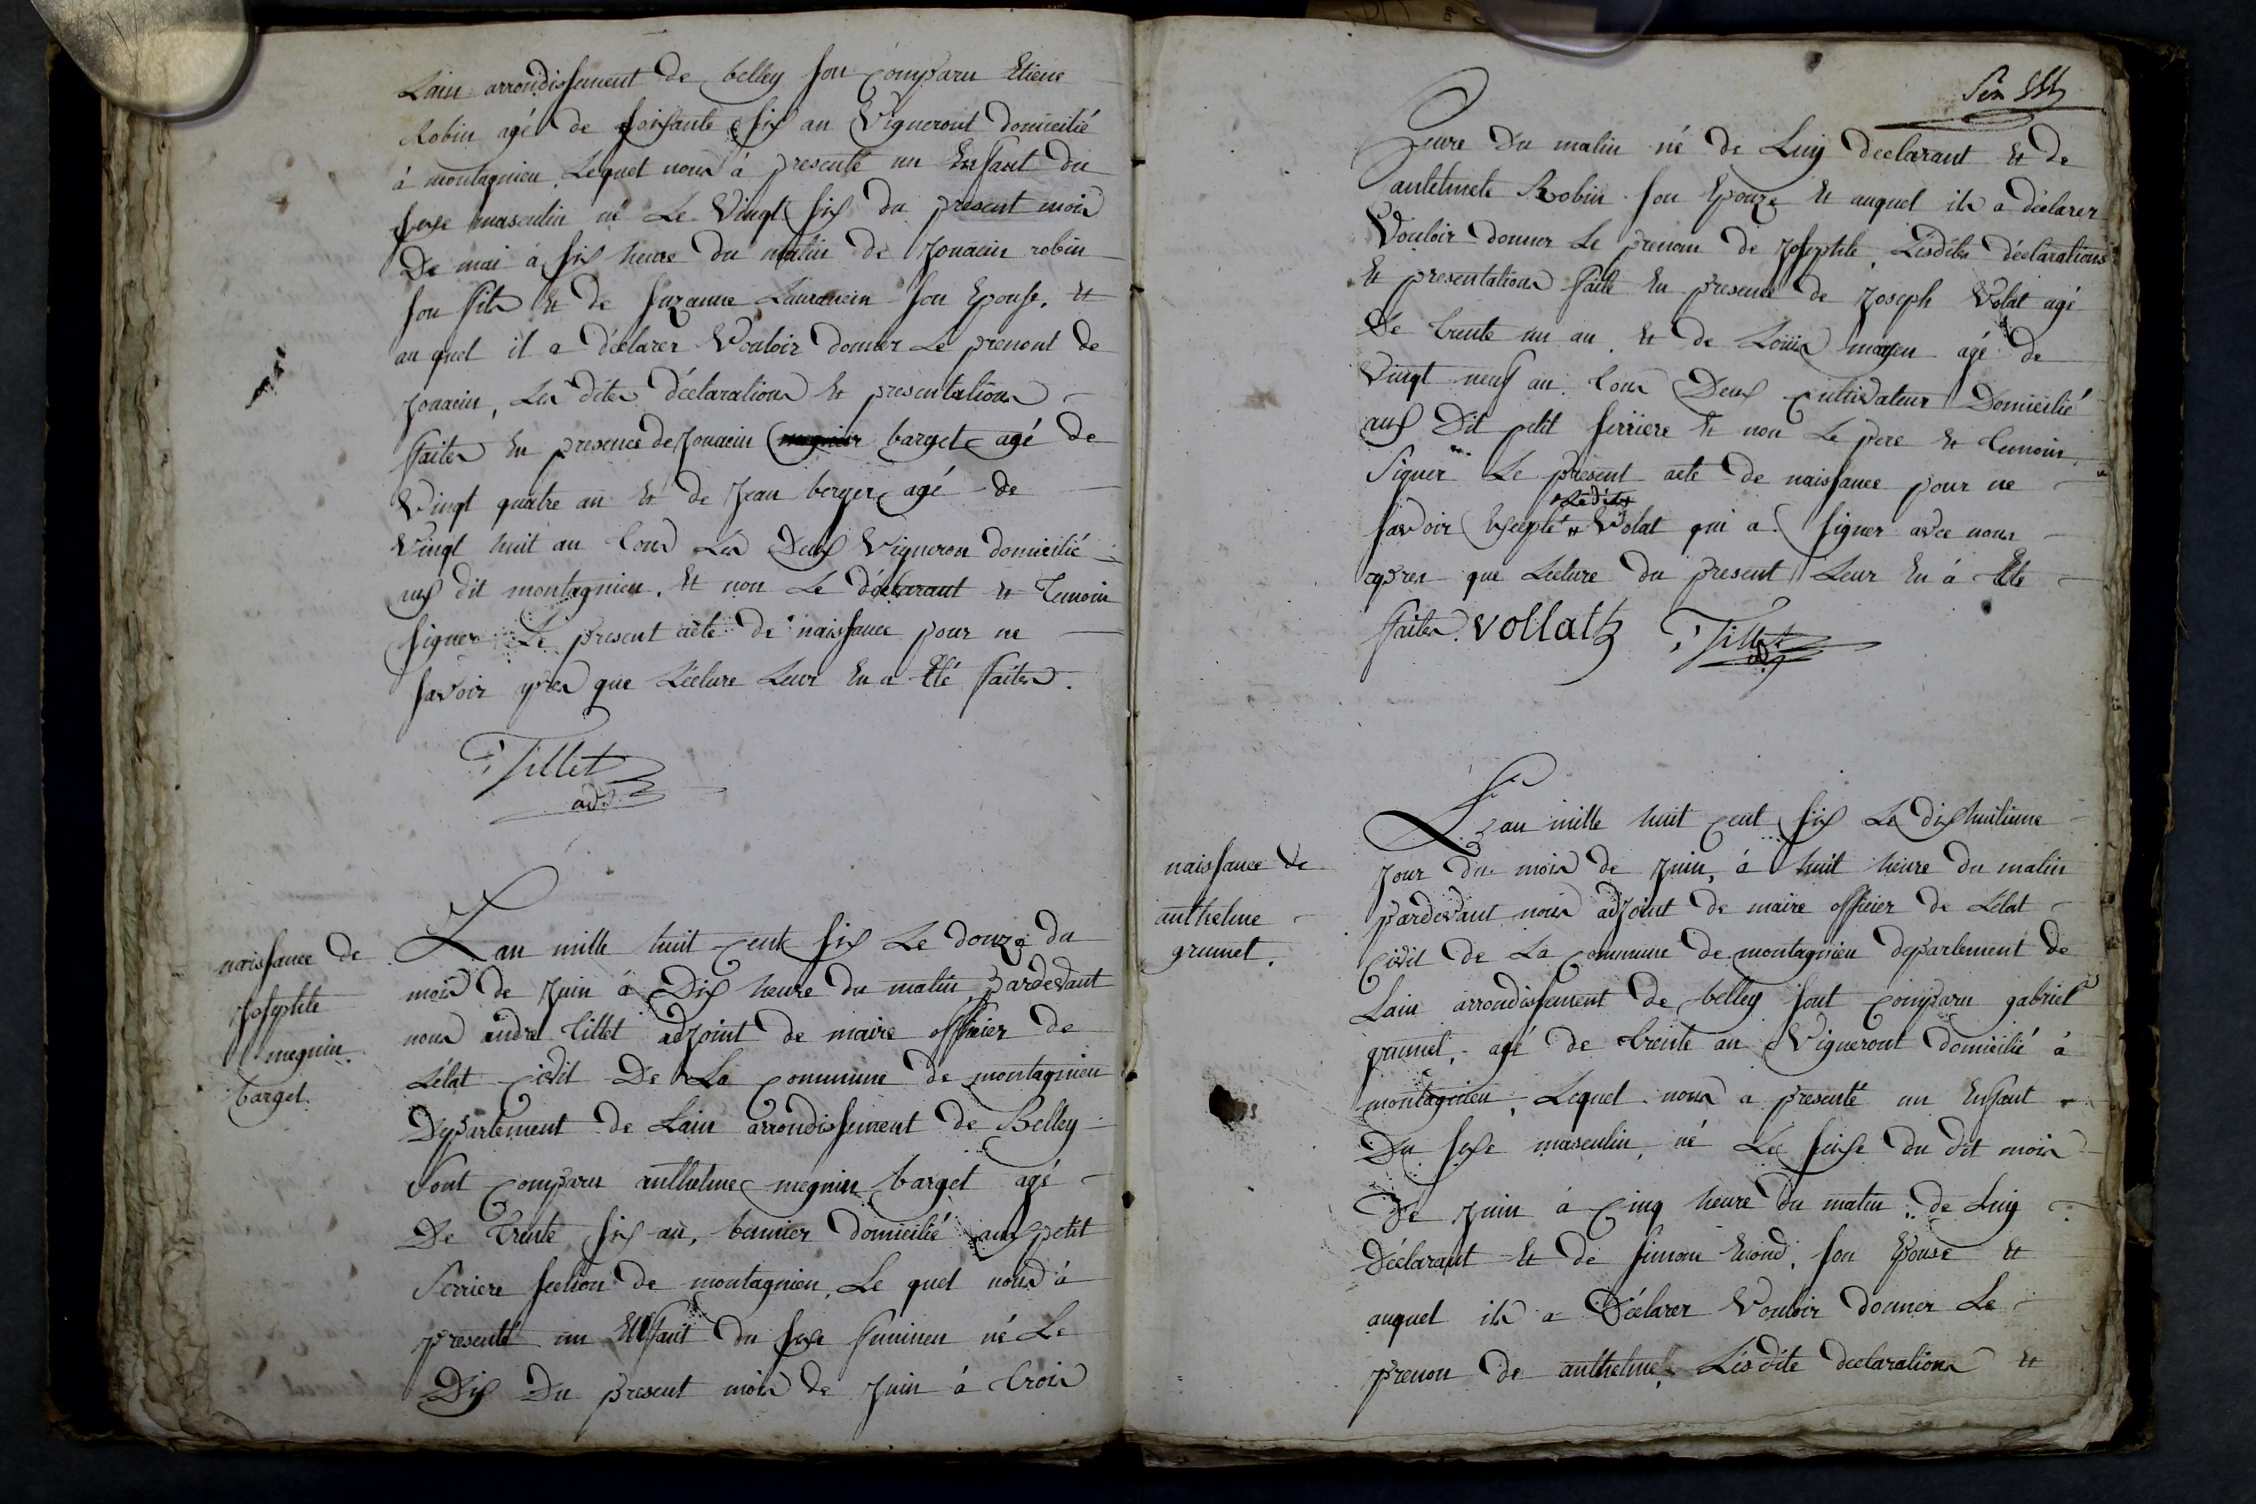 Lain arrondissement de belley son comparu Etiene
Robin agé de soisante six an Vigneront domicilié
à montagnieu, Lequel nous à presenté un Enfant du
sexe masculin né Le Vingt six du present mois
De mai à six heure du matin de Jouacin robin
son fils et de Suzanne Laurancin son Epouse, et
au quel il a déclarer Vouloir donner Le prenont de
Jouacin, Les dites déclarations et presentations
faites En presence de Jouacin barget agé de
Vingt quatre an et de Jean berger agé de
Vingt huit an tous Les Deux Vigneron domicilié
aux dit montagnieu, Et non Le déclarant et Temoin
signer Le present acte de naissance pour ne
savoir apres que Lecture Leur En a Eté faites.
Tillet
adj.
naissance de
Josephte
megnin
barget.
Lan mille huit cent six Le douze du
mois de Juin à Dix heure du matin pardevant
nous andré tillet adjoint de maire officier de
Létat civil De La commune de montagnieu
Departement de Lain arrondissement de Belley
sont comparu anthelme megnin barget agé
De trente six an, domicilié aux petit
Serriere section de montagnieu, Le quel nous à
presenté un Enfant du sexe feminen né Le
Dix Du present mois de Juin à trois
heure du matin né de Luy declarant et de
antelmete Robin son Epouze et auquel ils a déclarer
Vouloir donner Le prenom de Josephte, Lesdites déclarations
et presentations faite En presence de Joseph Volat agé
De trente un an, et de Loüis moyen agé de
Vingt neuf an tous Deux cultivateur Domicilié
aux Dit petit serriere et non Le pere et temoin
Signer Le present acte de naissance pour ne
savoir Excepté Volat qui a signer avec nous
apres que Lecture du present Leur En à Ete
faites. vollat Tillet
adj
naissance de
anthelme
grumet.
Lan mille huit cent six Le dix huitieme
Jour du mois de Juin, à huit heure du matin
pardevant nous adjoint de maire officier de Létat
Civil de La commune de montagnieu departement de
Lain arrondissement de belley sont comparu gabriel
grumet, agé de trente an Vigneront domicilié à
montagnieu, Lequel nous a presenté un Enfant
Du sexe masculin, né Le seise du dit mois
De Juin à Cinq heure du matin de Luy
Déclarant et de simone son Epouse et
auquel ils a Déclarer Vouloir donner Le
prenon de anthelme, Lesdite declarations et